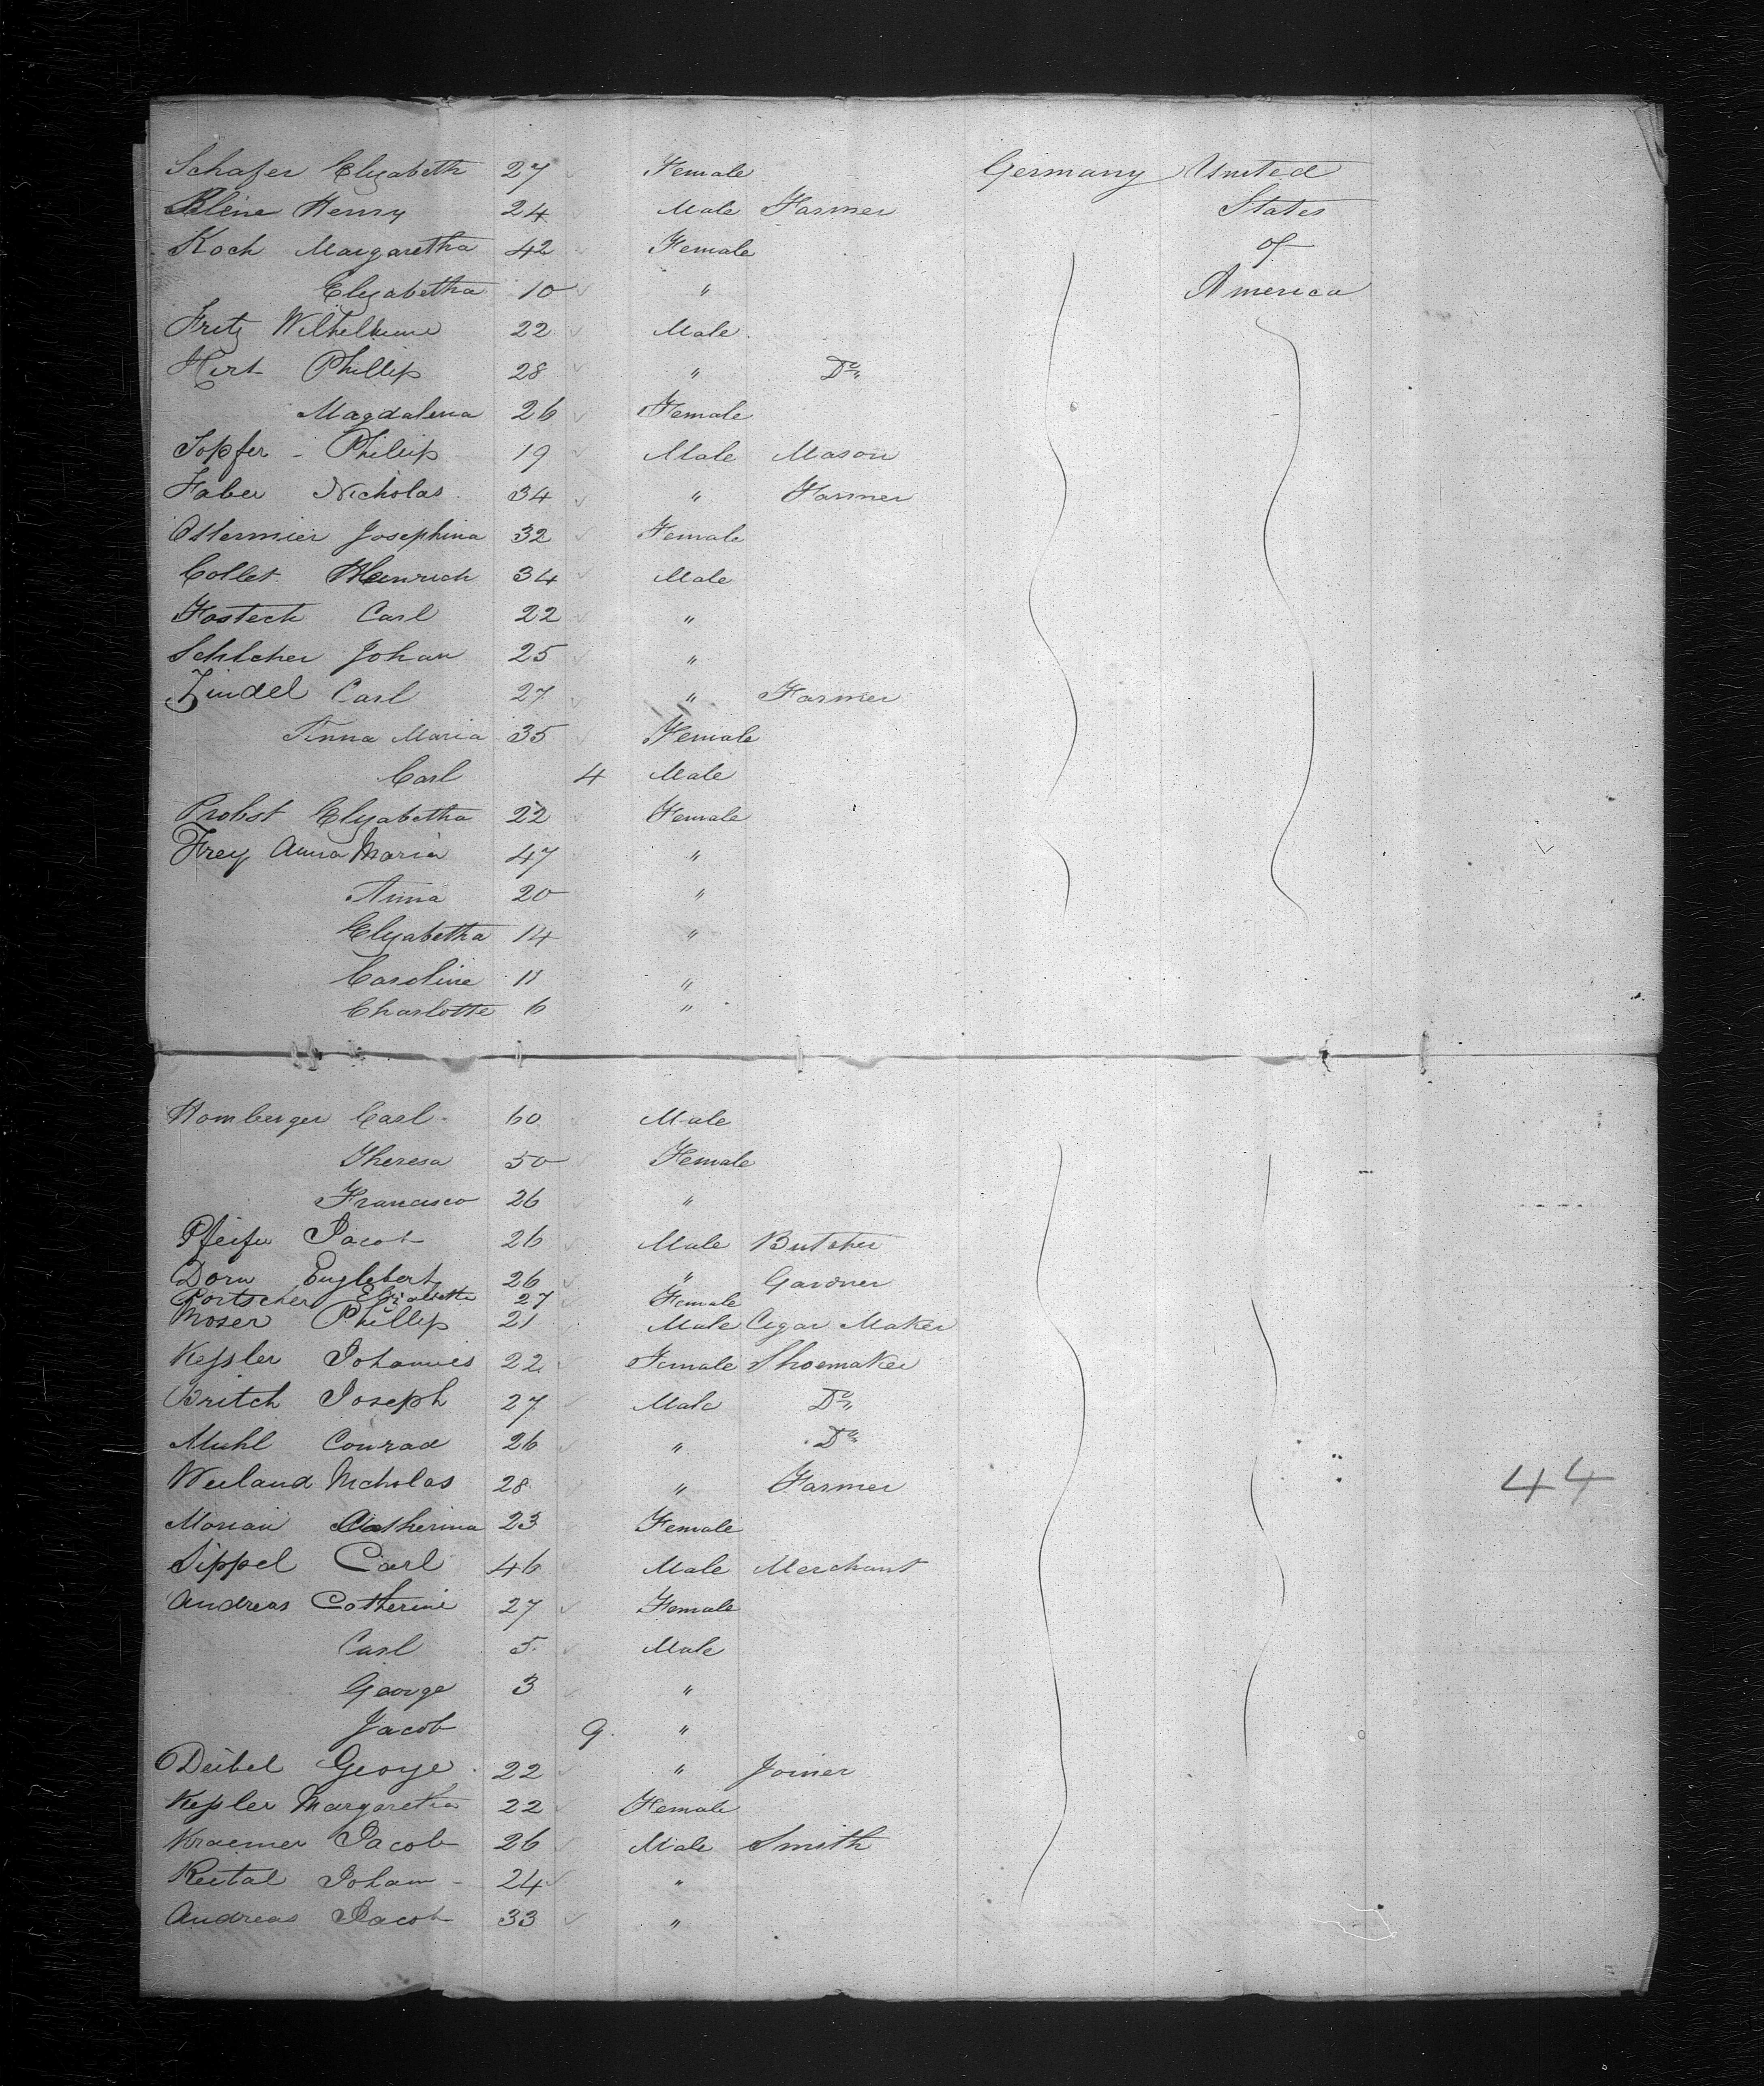 Schafer Elizabeth 27 Female Germany United
Kline Henry 24 Male Farmer States
Koch Margaretha 42 Female of
Elizabetha 10 " America
Fritz Wilhelmine 22 Male
Hirt Phillip 28 " Do
Magdalena 26 Female
Topfer - Phillip 19 Male Mason
Faber Nicholas 34 " Farmer
Ostermier Josephina 32 Female
Collet Heinrich 34 Male
Fosteck Carl 22 "
Schlcher Johan 25 "
Zindel Carl 27 " Farmer
Anna Maria 35 Female
Carl 4 Male
Probst Elizabetha 22 Female
Frey Anna Maria 47 "
Anna 20 "
Elizabetha 14 "
Caroline 11 "
Charlotte 6 "
Homberger Carl 60 Male
Theresa 50 Female
Francisco 26 "
Pfeifer Jacob 26 Male Butcher
Dorn Englebert 26 " Gardner
Portscher Elizabetha 27 Female
Moser Phillip 21 Male Cigar Maker
Kessler Johannes 22 Female Shoemaker
Britch Joseph 27 Male Do
Muhl Conrad 26 " Do
Weiland Nicholas 28 " Farmer
44
Morian Catherina 23 Female
Sippel Carl 46 Male Merchant
Andreas Catherine 27 Female
Carl 5 Male
George 3 "
Jacob 9 "
Deibel George 22 " Joiner
Kessler Margaretha 22 Female
Kraemer Jacob 26 Male Smith
Reital Johann - 24 "
Andreas Jacob 33 "